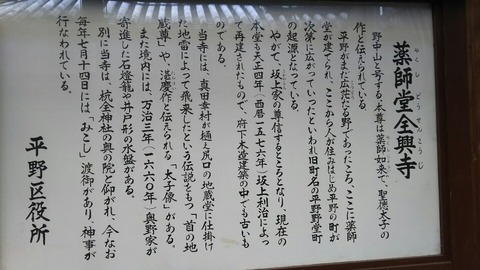 薬師堂全興寺
やくしどうぜんこうじ
野中山と号する。本尊は薬師如来で、聖徳太子の
作と伝えられている。
平野がまだ広茫たる野であったころ、ここに薬師
堂が建てられ、ここから人が住みはじめ平野の町が
次第に広がっていったといわれ旧町名の平野野堂町
の起源になっている。
やがて、坂上家の尊信するところとなり、現在の
本堂も天正四年（西暦一五七六年）坂上利治によっ
て再建されたもので、府下木造建築の中でも古いも
のである。
当寺には、真田幸村が樋え尻口の地蔵堂に仕掛け
た地雷によって飛来したという伝説をもつ「首の地
蔵尊」や、湛慶作と伝えられる「太子像」がある。
また境内には、万治三年（一六六〇年）奥野家が
寄進した石燈籠や井戸形の水盤がある。
別に当寺は、杭全神社の奥の院と仰がれ、今なお
毎年七月十四日には「みこし」渡御があり、神事が
行なわれている。
平野区役所